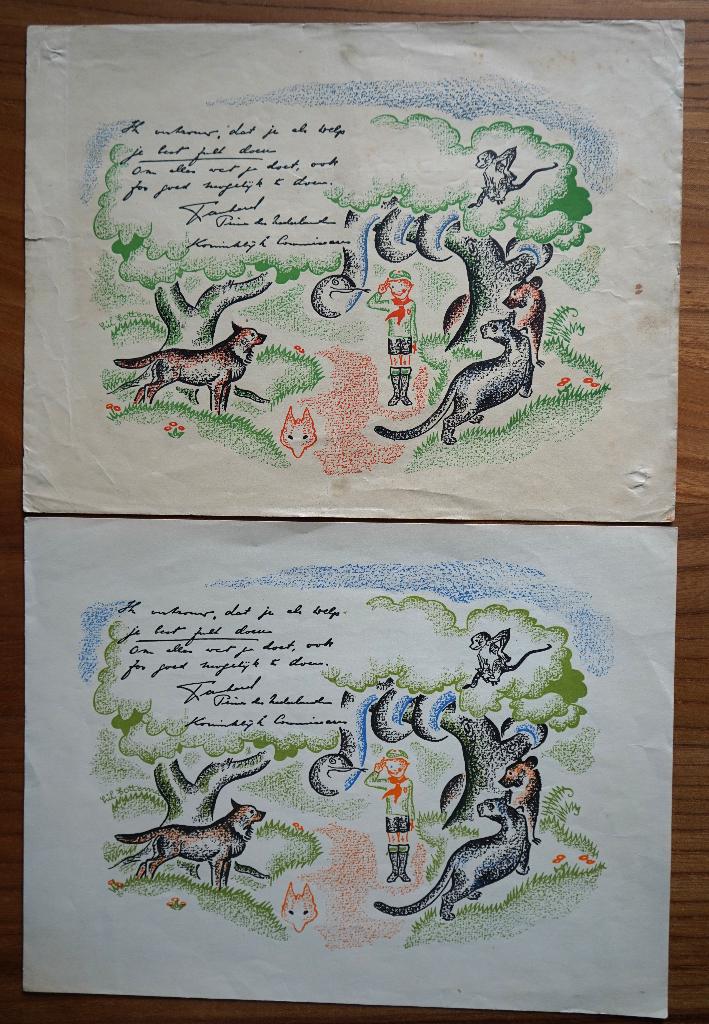 Ik vertrouw, dat je als Welp
je best zult doen
om alles wat je doet, ook
zo goed mogelijk te doen.
Bernhard
Prins der Nederlanden
Koninklijk Commissaris
Ik vertrouw, dat je als Welp
je best zult doen
om alles wat je doet, ook
zo goed mogelijk te doen.
Bernhard
Prins der Nederlanden
Koninklijk Commissaris